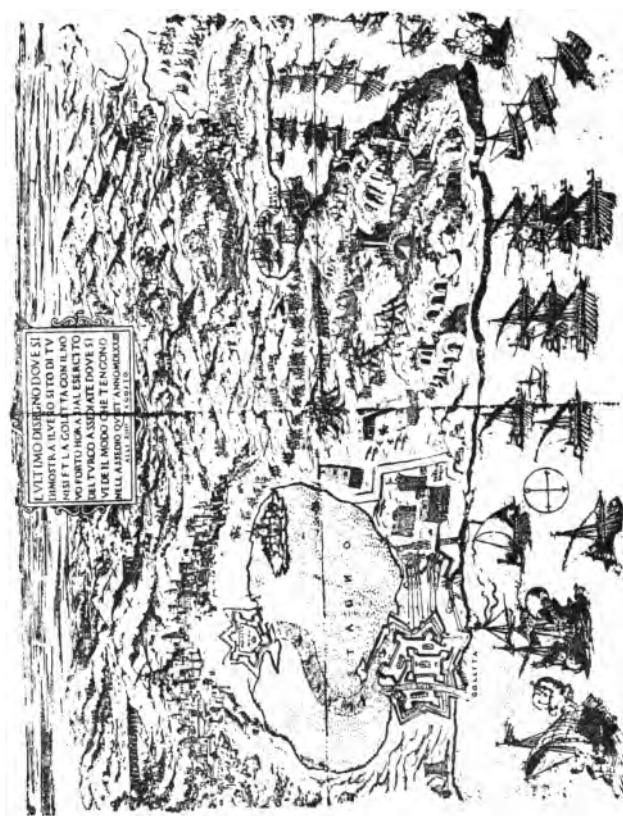 L'VLTIMO DISEGNO DOVE SI
DIMOSTRA IL VERO SITO DI TV
NISI ET LA GOLETTA CON IL NO
VO FORTE HORA DAL ESERCITO
DEL TVRCO ASSEDIATE DOVE SI
VEDE IL MODO CHE TENGONO
NELL ASSEDIO QVEST ANNO
STAGNO
GOLETTA